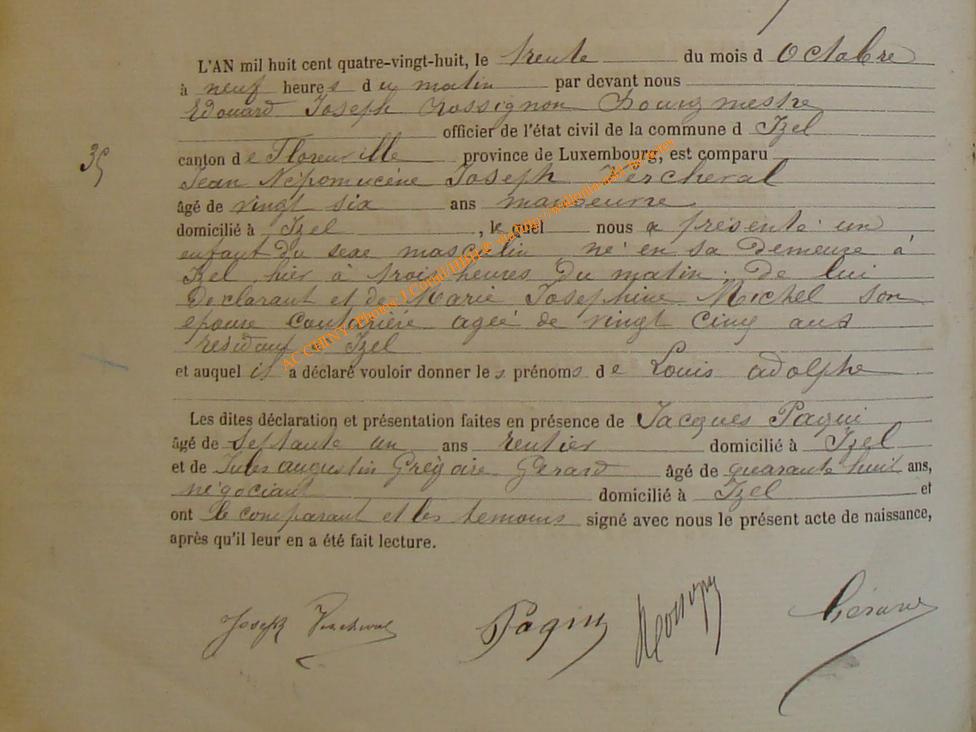 L'AN mil huit cent quatre-vingt-huit, le trente du mois d Octobre
à neuf heures du matin par devant nous
Edouard Joseph Rossignon Bourgmestre
officier de l'état civil de la commune d Izel
35
canton de Florenville province de Luxembourg, est comparu
Jean Népomucène Joseph Percheval
âgé de vingt six ans manoeuvre
domicilié à Izel, lequel nous a présenté un
enfant du sexe masculin né en sa demeure à
Izel hier à trois heures du matin, de lui
Déclarant et de Marie Josephine Michel son
épouse couturière agée de vingt cinq ans
résidant Izel
et auquel il a déclaré vouloir donner les prénoms de Louis adolphe
Les dites déclaration et présentation faites en présence de Jacques Paquı
âgé de Septante un ans rentier domicilié à Izel
et de Jules augustin Grégoire Gérard âgé de quarante huit ans,
négociant domicilié à Izel et
ont le comparant et les témoins signé avec nous le présent acte de naissance,
après qu'il leur en a été fait lecture.
Joseph Percheval Gérard